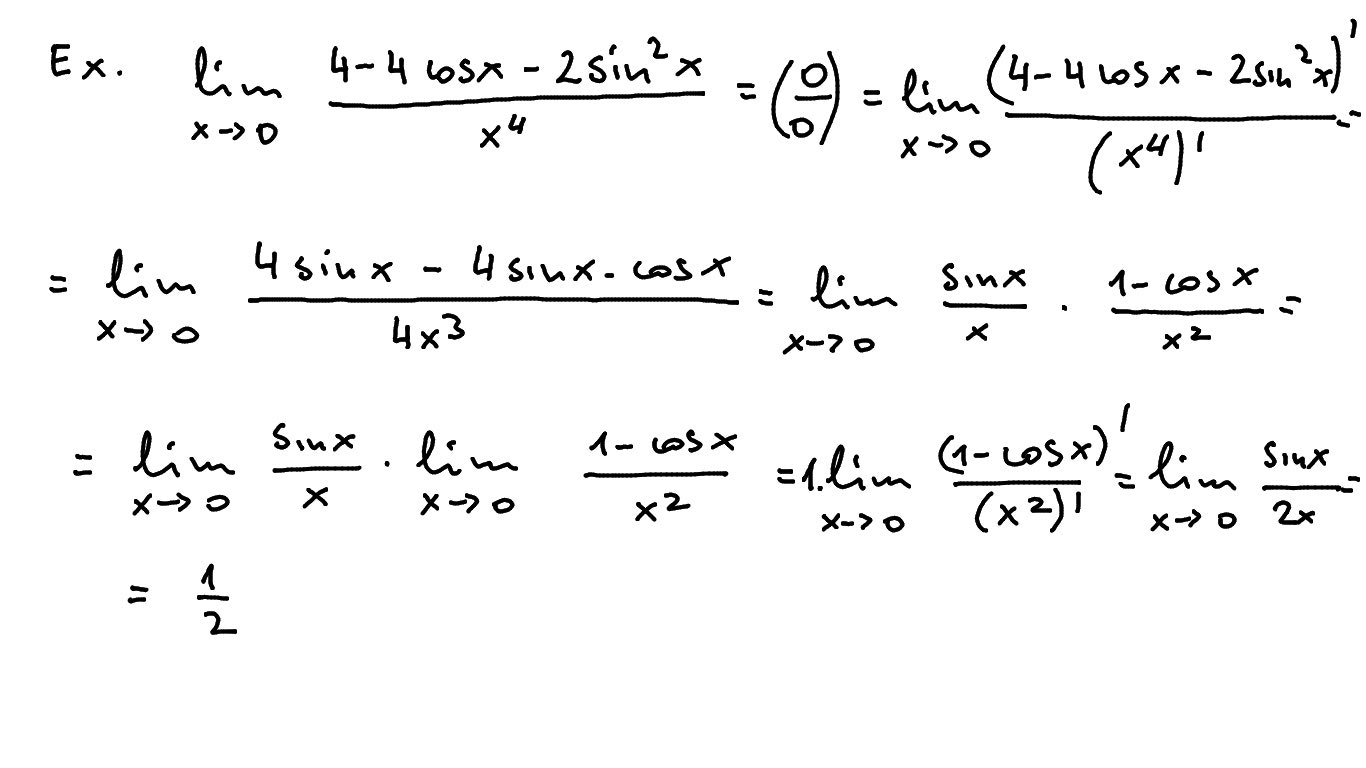 Ex. lim x→0 (4 - 4 cos x - 2 sin² x)/x⁴ = (0/0) = lim x→0 (4 - 4 cos x - 2 sin² x)'/(x⁴)' =
= lim x→0 (4 sin x - 4 sin x · cos x)/4x³ = lim x→0 sin x/x · (1 - cos x)/x² =
= lim x→0 sin x/x · lim x→0 (1 - cos x)/x² = 1 · lim x→0 (1 - cos x)'/(x²)' = lim x→0 sin x/2x =
= 1/2